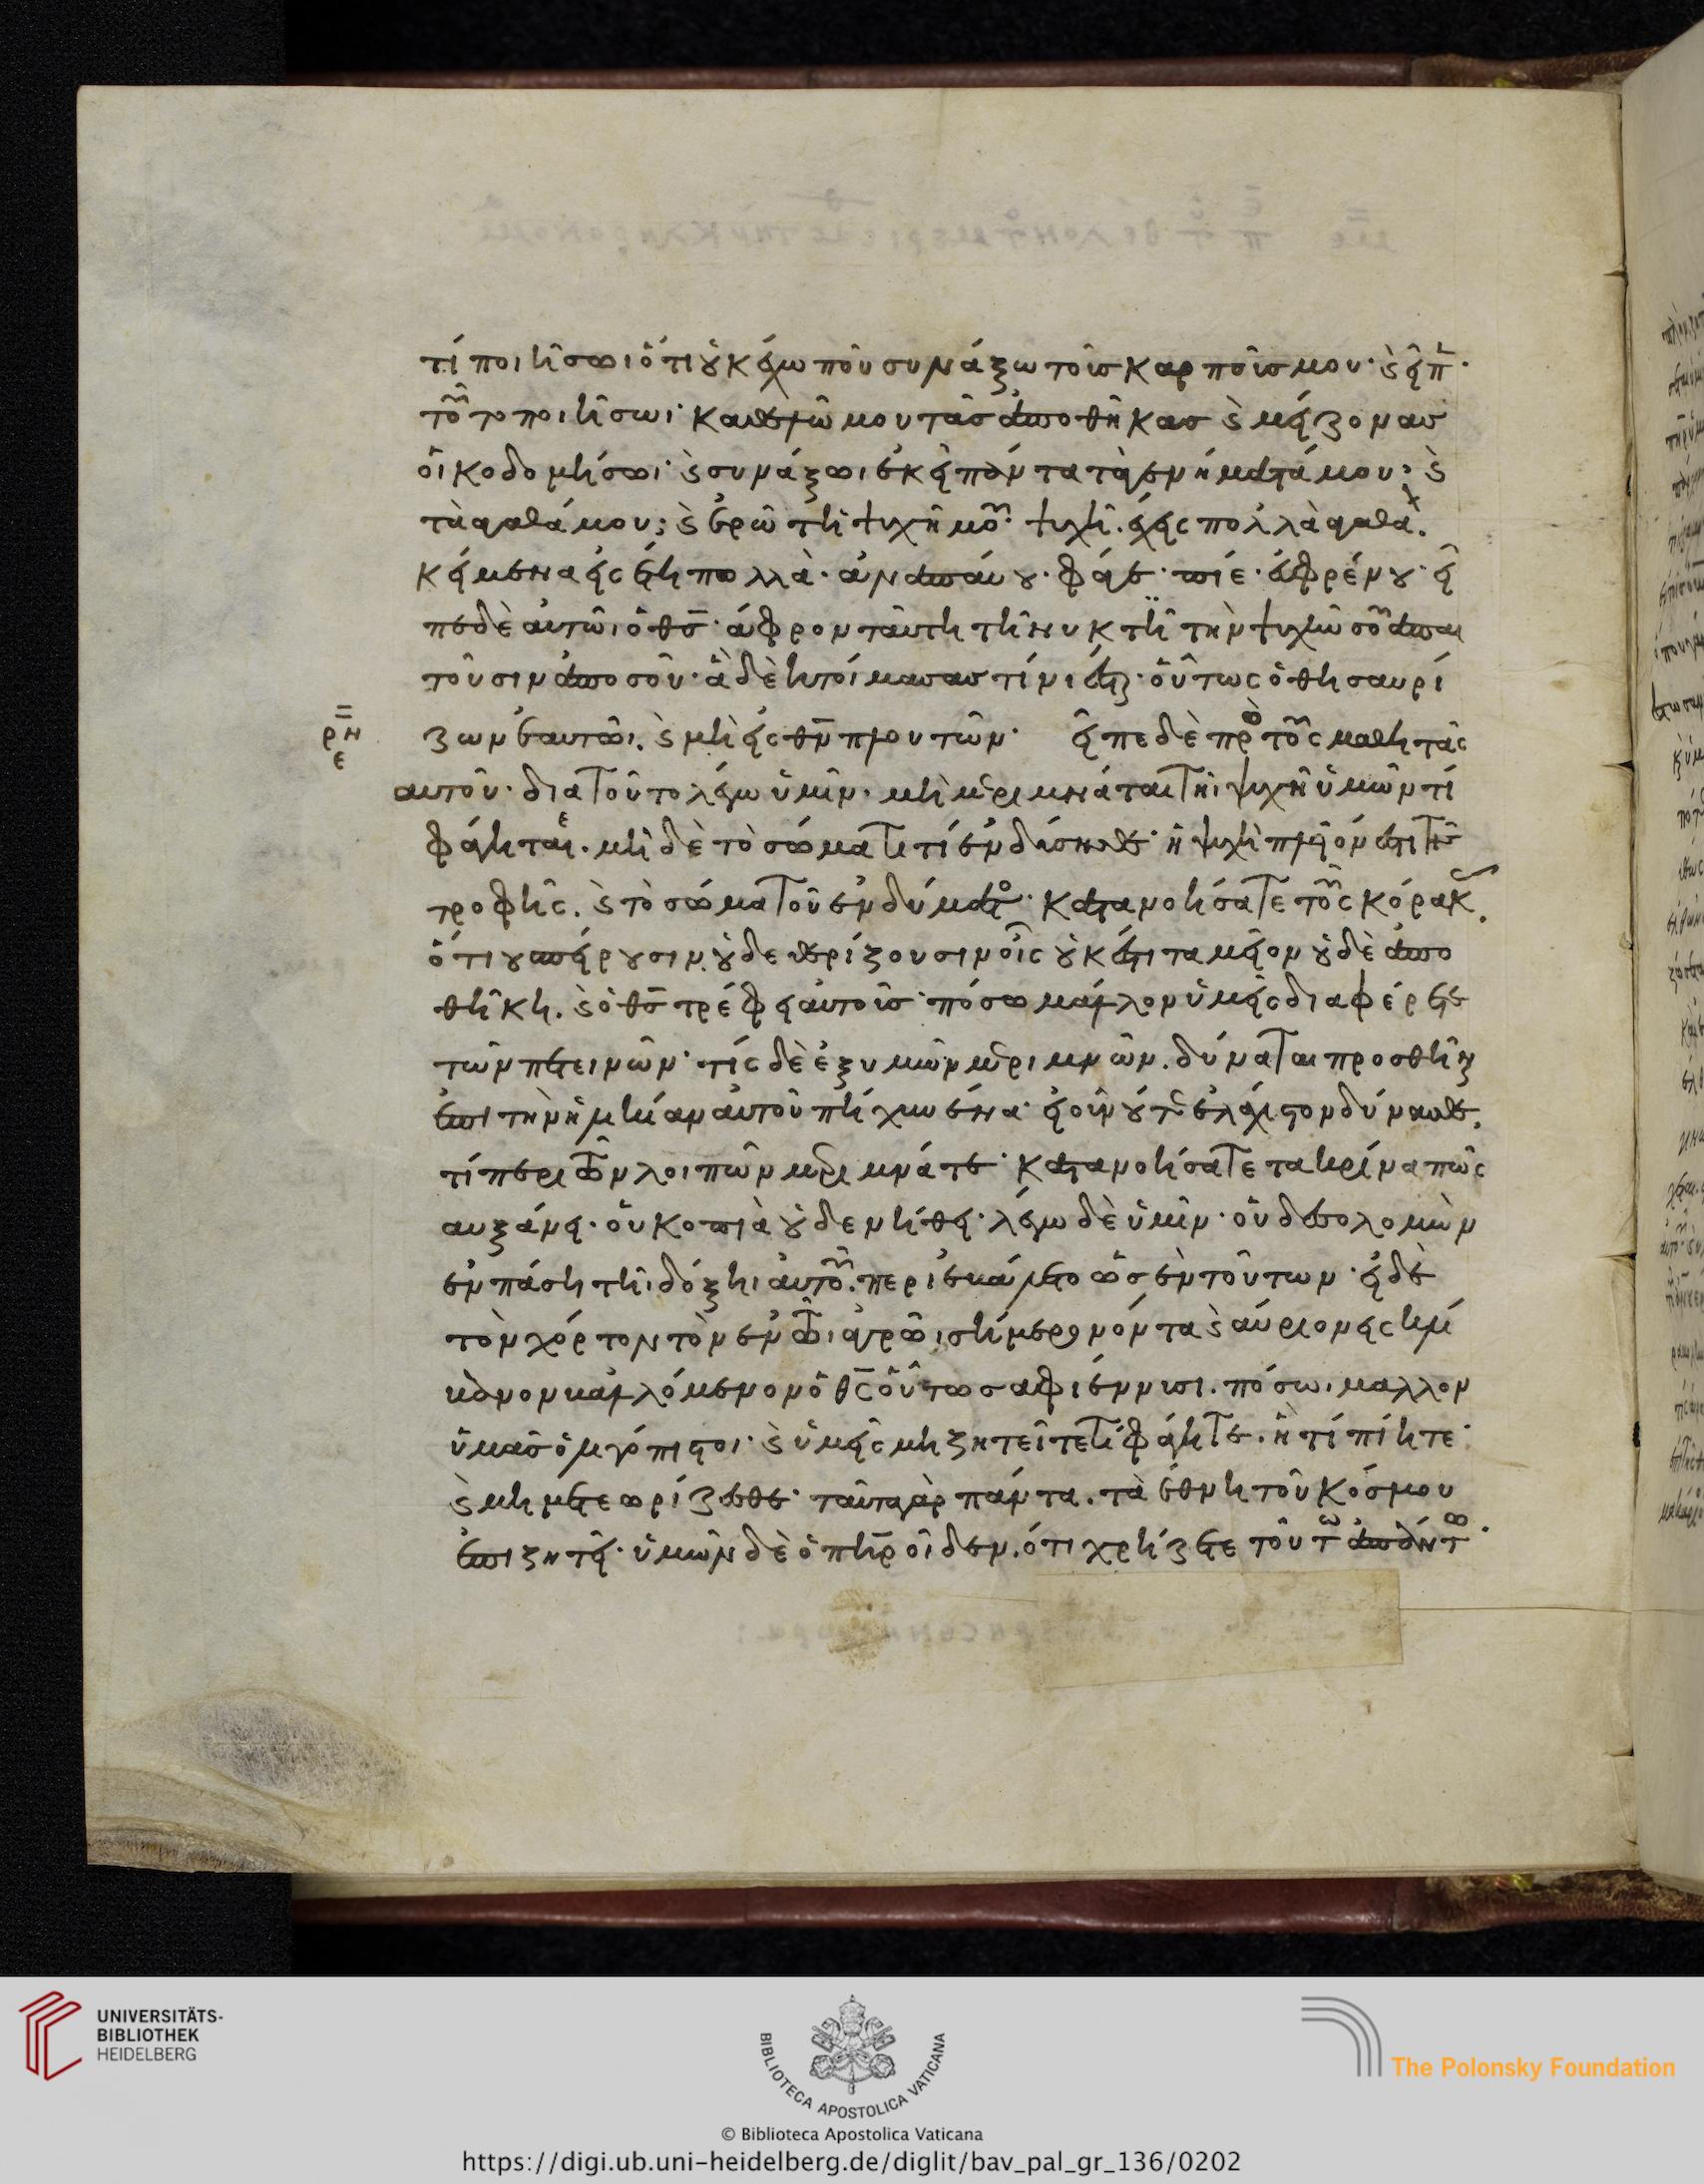 τί ποιήσωι ὅτι οὐκ ἔχω ποῦ συνάξω τοὺς καρπούς μου· καὶ εἶπ·
τοῦτο ποιήσωι· καθελῶ μου τὰς ἀποθήκας καὶ μείζονας
οἰκοδομήσωι· καὶ συνάξωι ἐκεῖ πάντα τὰ γενήματά μου· καὶ
τὰ ἀγαθά μου· καὶ ἐρῶ τῆι ψυχῆι μου· ψυχὴ. ἔχεις πολλὰ ἀγαθὰ.
κείμενα εἰς ἔτη πολλὰ· ἀναπαύου· φάγε· πίε· εὐφραίνου· εἶ
πε δὲ αὐτῶι ὁ θς· ἄφρον ταύτη τῆ νυκτὶ τὴν ψυχήν σου ἀπαι
τοῦσιν ἀπὸ σοῦ· ἃ δὲ ἡτοίμασας τίνι ἔσται· οὕτως ὁ θησαυρί
ζων ἑαυτῶι. καὶ μὴ εἰς θν πλουτῶν· εἶπε δὲ πρὸ τοὺς μαθητὰς
αὐτοῦ· διατοῦτο λέγω ὑμῖν· μὴ μεριμνᾶται τῆι ψυχῆ ὑμῶν τί
φάγηται. μὴ δὲ τὸ σώματι τί ἐνδύσησθε· ἡ ψυχὴ πλεῖόν ἐστι τῆς
τροφῆς. καὶ τὸ σώμα τοῦ ἐνδύματο· κατανοήσατε τοὺς κόρακ.
ὅτι οὐ σπείρουσιν. οὐδὲ θερίζουσιν οἷς οὐκ ἔστι ταμεῖον οὐδὲ ἀπο
θήκη. καὶ ὁ θς τρέφει αὐτοὺς· πόσω μάλλον ὑμεῖς διαφέρετε
τῶν πετεινῶν· τίς δὲ ἐξ υμῶν μεριμνῶν. δύναται προσθεῖναι
ἐπι τὴν ἡλικίαν αὐτοῦ πήχυν ἕνα· εἰ οὖν οὔτε ἐλάχιστον δύνασθε.
τί περι τῶν λοιπῶν μεριμνάτε· κατανοήσατε τα κρίνα πῶς
αυξάνει· οὐ κοπιὰ οὐδε νήθει· λέγω δὲ ὑμῖν· οὐδε σολομὼν
ἐν πάση τῆι δόξηι αὐτοῦ. περιεβάλετο ὡς ἓν τοῦτων· εἰ δὲ
τὸν χόρτον τὸν ἐν τῶι ἀγρῶι σήμερον ὄντα καὶ αύριον εἰς κλί
βανον βαλλόμενον ὁ θς οὕτως αμφιέννυσι. πόσωι μαλλον
ὑμᾶς ὀλιγόπιστοι· καὶ ὑμεῖς μη ζητεῖτε τί φάγητε. ἢ τί πίητε·
καὶ μη μετεωρίζεσθε· ταῦτα γὰρ πάντα. τὰ ἔθνη τοῦ κόσμου
ἐπιζητεῖ· ὑμῶν δὲ ὁ πηρ οἶδεν. ὅτι χρήζετε τούτω ἁπάντω·
ρν
ε
UNIVERSITÄTS-
BIBLIOTHEK
HEIDELBERG
BIBLIOTECA APOSTOLICA VATICANA
The Polonsky Foundation
© Biblioteca Apostolica Vaticana
https://digi.ub.uni-heidelberg.de/diglit/bav_pal_gr_136/0202